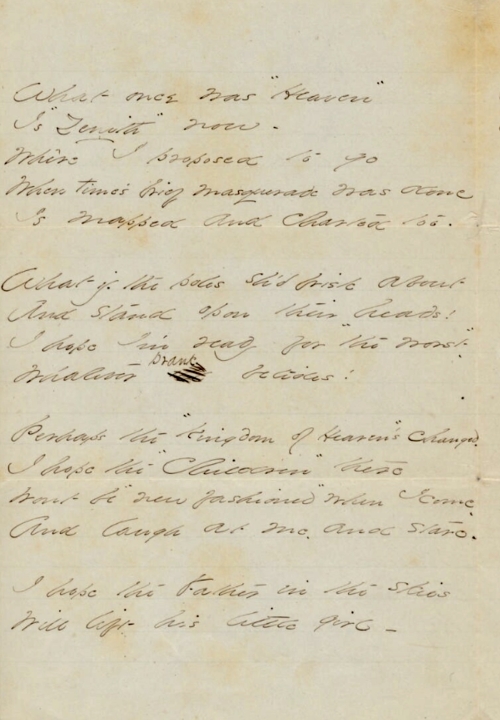 What once was "Heaven"
Is "Zenith" now.
Where I proposed to go
When time's brief masquerade was done
Is mapped and charted too.
What if the poles sh'd frisk about
And stand upon their heads!
I hope I'm ready for "the worst"
Whatever prank betides!
Perhaps the "kingdom of Heaven's" changed.
I hope the "Children" there
Wont be "new fashioned" when I come,
And laugh at me, and stare.
I hope the Father in the skies
Will lift his little girl –